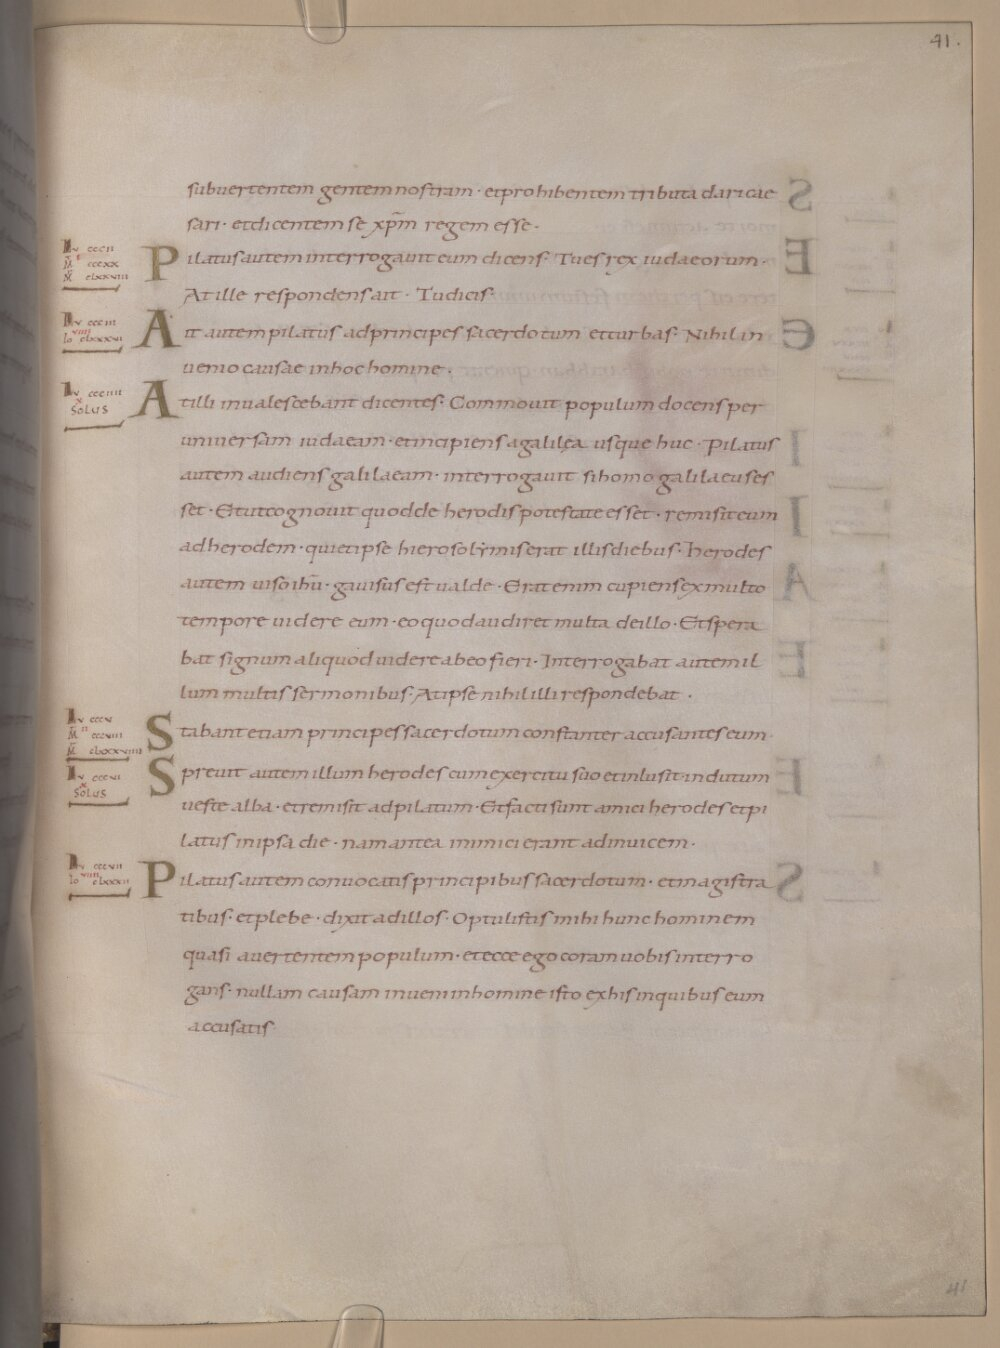 41.
subuertentem gentem nostram · et prohibentem tributa dari cae
sari · et dicentem se xp̄m regem esse ·
Lv cccii
M̄ cccxx
M̄ clxxviii
Pilatus autem interrogauit eum dicens · Tu es rex iudaeorum ·
At ille respondens ait · Tu dicis ·
Lv ccciii
viiii
Io clxxxvi
Ait autem pilatus ad principes sacerdotum et turbas · Nihil in
uenio causae in hoc homine ·
Lv ccciiii
x
SOLUS
At illi inualescebant dicentes · Commouit populum docens per
uniuersam iudaeam · et incipiens a galilęa usque huc · Pilatus
autem audiens galilaeam · interrogauit si homo galilaeus es
set · Et ut cognouit quod de herodis potestate esset · remisit eum
ad herodem · qui et ipse hierosolymis erat illis diebus · herodes
autem uiso ihū · gauisus est ualde · Erat enim cupiens ex multo
tempore uidere eum · eo quod audiret multa de illo · Et spera
bat signum aliquod uidere ab eo fieri · Interrogabat autem il
lum multis sermonibus · At ipse nihil illi respondebat ·
Lv cccv
ii
M̄ cccviii
M̄ clxxxviii
Stabant etiam principes sacerdotum constanter accusantes eum ·
Lv cccvi
x
SOLUS
Spreuit autem illum herodes cum exercitu suo et inlusit indutum
ueste alba · et remisit ad pilatum · Et facti sunt amici herodes et pi
latus in ipsa die · nam antea inimici erant ad inuicem ·
Lv cccvii
viiii
Io clxxxii
Pilatus autem conuocatis principibus sacerdotum · et magistra
tibus · et plebe · dixit ad illos · Optulistis mihi hunc hominem
quasi auertentem populum · et ecce ego coram uobis interro
gans · nullam causam inueni in homine isto ex his in quibus eum
accusatis
41